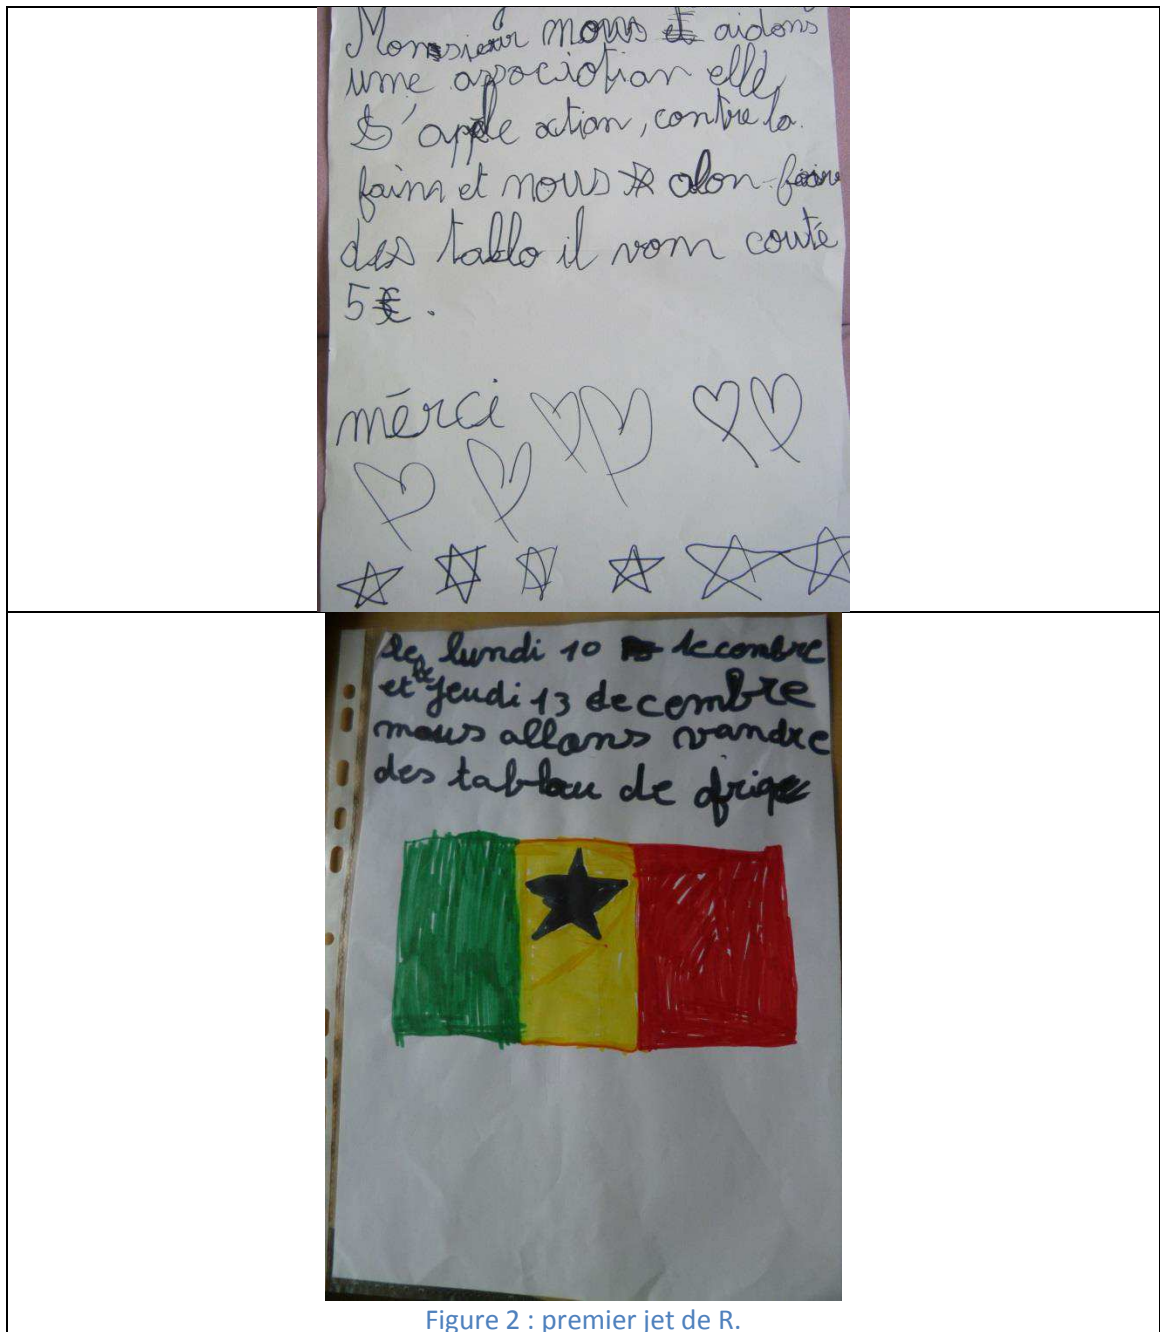 Monssieur nous aidons
une association elle
s'apple action, contre la
faim et nous alon faire
des tablo il vom couté
5€.
mérci
le lundi 10 decembre
et le jeudi 13 decembre
nous allons vandre
des tablau de friqe
Figure 2 : premier jet de R.